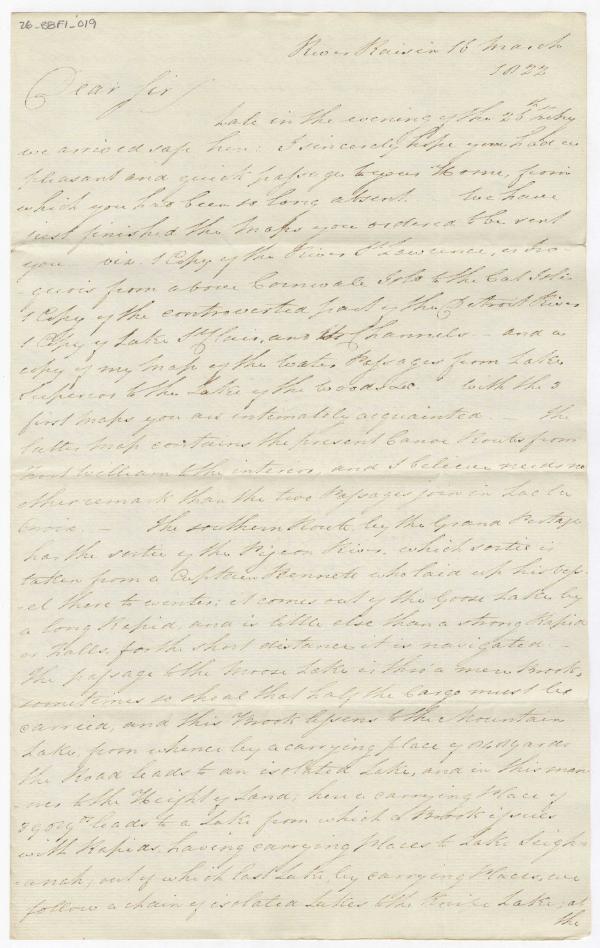 26-BBF1-019
River Raisin 16 March
1822
Dear Sir
Late in the evening of the 26th
we arrived safe here: I sincerely hope you have a
pleasant and quick passage to your Home, from
which you had been so long absent. We have
just finished the Maps you ordered to be sent
you viz. 1 Copy of the River St Lawrence, or Iro-
-quois from above Cornwale Isle to the Gal Isles
1 Copy of the controverted part of the Detroit River
1 Copy of Lake St Clair, and Channels - and a
copy of my Map of the Water Passages from Lake
Superior to the Lake of the Woods &c. With the 3
first Maps you are intimately acquainted. The
latter Map contains the present Canoe Route from
Fort William to the interior, and I believe needs no
other remark than the two Passages join in Lac la
Croix. - The southern Route by the Grand Portage
has the sortie of the Pigeon River, which sortie is
taken from a Captain Bennett who laid up his ves-
-sel there to winter; it comes out of the Goose Lake by
a long Rapid, and is little else than a strong Rapid
or Falls, for the short distance it is navigated. -
The passage to the Moose Lake is thro' a mere Brook,
sometimes so shoal that half the Cargo must be
carried, and this Brook lessens to the Mountain
Lake, from whence by a carrying place of yards
the Road leads to an isolated Lake, and in this man-
-ner to the Height of Land; here a carrying Place of
yds leads to a Lake from which a Brook issues
with Rapids, having carrying places to Lake Seigh-
-anah; out of which last Lake, by carrying Places, we
follow a chain of isolated Lakes to the Knife Lake; at
the